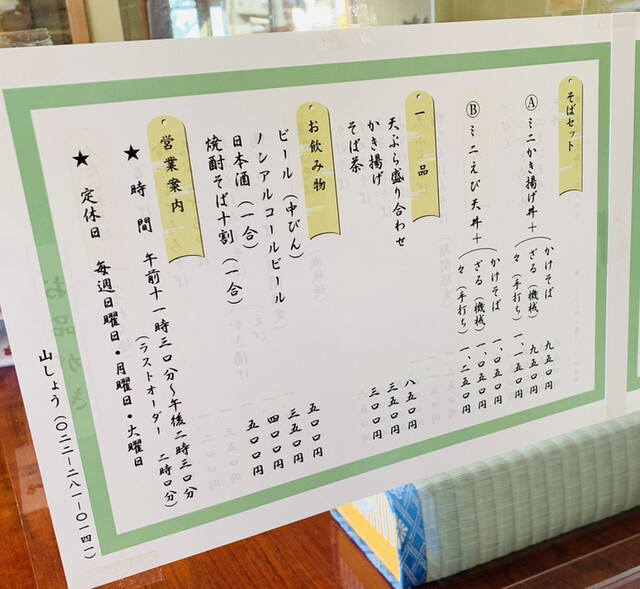 そばセット
Ⓐ ミニかき揚げ丼＋ かけそば 九五〇円
ざる（機械） 九五〇円
々（手打ち） 一、一五〇円
Ⓑ ミニえび天丼＋ かけそば 一、〇五〇円
ざる（機械） 一、〇五〇円
々（手打ち） 一、二五〇円
一品
天ぷら盛り合わせ 八五〇円
かき揚げ
そば茶 三〇〇円
お飲み物
ビール（中びん） 五〇〇円
ノンアルコールビール 三五〇円
日本酒（一合） 四〇〇円
焼酎そば十割（一合） 五〇〇円
営業案内
★ 時間 午前十一時三〇分〜午後二時三〇分
（ラストオーダー 二時〇分）
★ 定休日 毎週日曜日・月曜日・火曜日
山しょう（〇二二ー二八一ー〇一四一）
お品がき